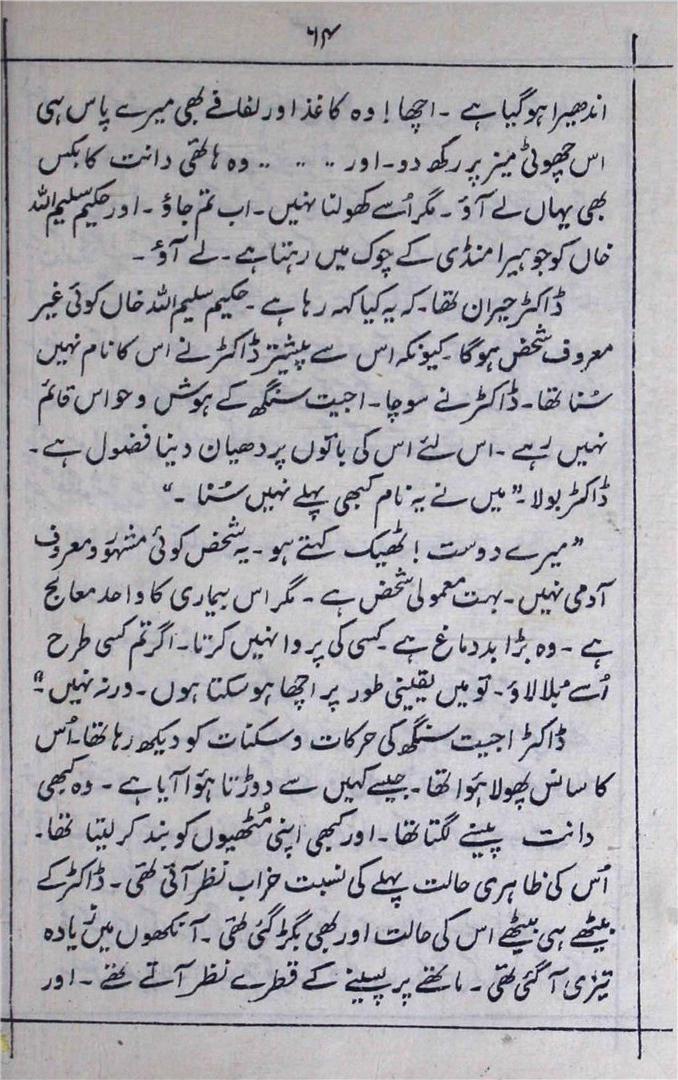 ۶۴
اندھیرا ہوگیا ہے ۔ اچھا! وہ کاغذ اور لفافے بھی میرے پاس ہی
اس چھوٹی میز پر رکھ دو۔ اور .. .. .. وہ ہاتھی دانت کا بکس
بھی یہاں لے آؤ ۔ مگر اُسے کھولنا نہیں ۔ اب تم جاؤ ۔ اور حکیم سلیم اللہ
خاں کو جو ہیرا منڈی کے چوک میں رہتا ہے ۔ لے آؤ ۔
ڈاکٹر حیران تھا۔ کہ یہ کیا کہہ رہا ہے ۔ حکیم سلیم اللہ خاں کوئی غیر
معروف شخص ہوگا ۔ کیونکہ اس سے پیشتر ڈاکٹر نے اس کا نام نہیں
سُنا تھا ۔ ڈاکٹر نے سوچا ۔ اجیت سنگھ کے ہوش و حواس قائم
نہیں رہے ۔ اس لئے اس کی باتوں پر دھیان دینا فضول ہے ۔
ڈاکٹر بولا ۔ ”میں نے یہ نام کبھی پہلے نہیں سُنا ۔“
”میرے دوست! ٹھیک کہتے ہو ۔ یہ شخص کوئی مشہور و معروف
آدمی نہیں ۔ بہت معمولی شخص ہے ۔ مگر اس بیماری کا واحد معالج
ہے ۔ وہ بڑا بددماغ ہے ۔ کسی کی پروا نہیں کرتا ۔ اگر تم کسی طرح
اُسے بلا لاؤ ۔ تو میں یقینی طور پر اچھا ہو سکتا ہوں ۔ ورنہ نہیں ۔“
ڈاکٹر اجیت سنگھ کی حرکات و سکنات کو دیکھ رہا تھا۔ اُس
کا سانس پھولا ہوُا تھا ۔ جیسے کہیں سے دوڑتا ہوُا آیا ہے ۔ وہ کبھی
دانت پیسنے لگتا تھا ۔ اور کبھی اپنی مُٹھیوں کو بند کر لیتا تھا ۔
اُس کی ظاہری حالت پہلے کی نسبت خراب نظر آتی تھی ۔ ڈاکٹر کے
بیٹھے ہی بیٹھے اس کی حالت اور بھی بگڑ گئی تھی ۔ آنکھوں میں زیادہ
تیزی آ گئی تھی ۔ ماتھے پر پسینے کے قطرے نظر آتے تھے ۔ اور